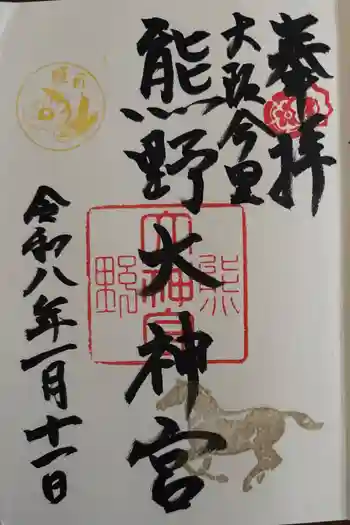 奉拝
大阪今里
熊野大神宮
令和八年一月十一日
熊野
大神宮